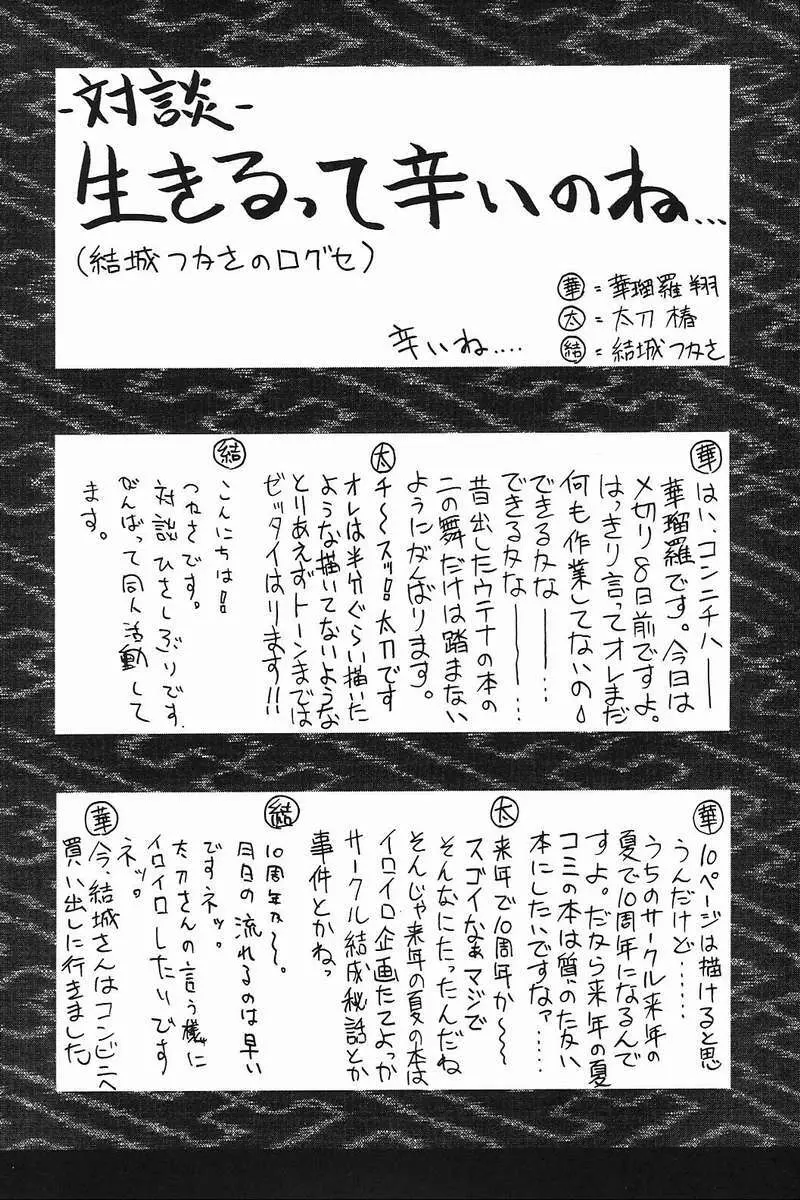 -対談-
生きるって辛いのね…
(結城つカさのログセ)
華=華瑠羅翔
太=太刀椿
結=結城つカさ
辛いね….
華
はい、コンニチハ——
華瑠羅です。今日は
〆切り8日前ですよ。
はっきり言ってオレまだ
何も作業してないの
できるかな——…
できるかな———…
昔出したウテナの本の
二の舞だけは踏まない
ようにがんばります。
太
チ〜スッ!!太刀です
オレは半分ぐらい描いた
ような描いてないような
とりあえずトーンまでは
ゼッタイはります!!
結
こんにちは!!
つカさです。
対談ひさしぶりです。
がんばって同人活動して
ます。
華
10ページは描けると思
うんだけど……
うちのサークル来年の
夏で10周年になるんで
すよ。だから来年の夏
コミの本は質のたかい
本にしたいですなァ……
太
来年で10周年か〜〜
スゴイなぁマジで
そんなにたったんだね
そんじゃ来年の夏の本は
イロイロ企画たてよっか
サークル結成秘話とか
事件とかねっ
結
10周年か〜。
月日の流れるのは早い
ですネッ。
太刀さんの言う様に
イロイロしたいです
ネッ。
華
今、結城さんはコンビニへ
買い出しに行きました